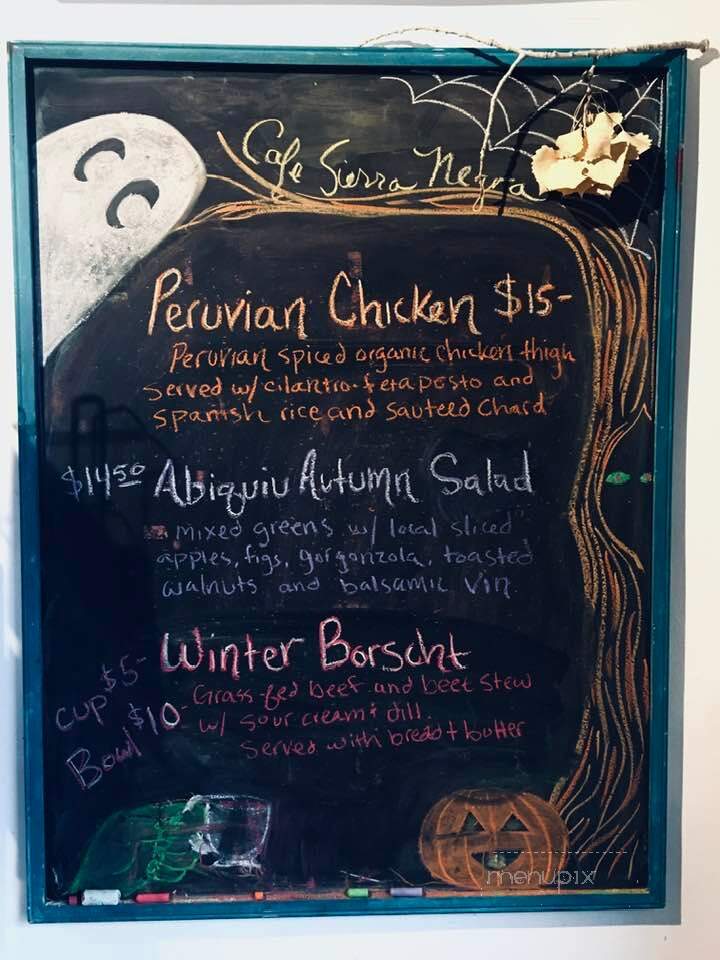 Cafe Sierra Negra
Peruvian Chicken $15-
Peruvian spiced organic chicken thigh
served w/ cilantro-feta pesto and
spanish rice and sauteed chard
$14.50 Abiquiu Autumn Salad
mixed greens w/ local sliced
apples, figs, gorgonzola, toasted
walnuts and balsamic vin.
Winter Borscht
cup $5-
Bowl $10-
Grass-fed beef and beet stew
w/ sour cream + dill.
Served with bread + butter
menupix